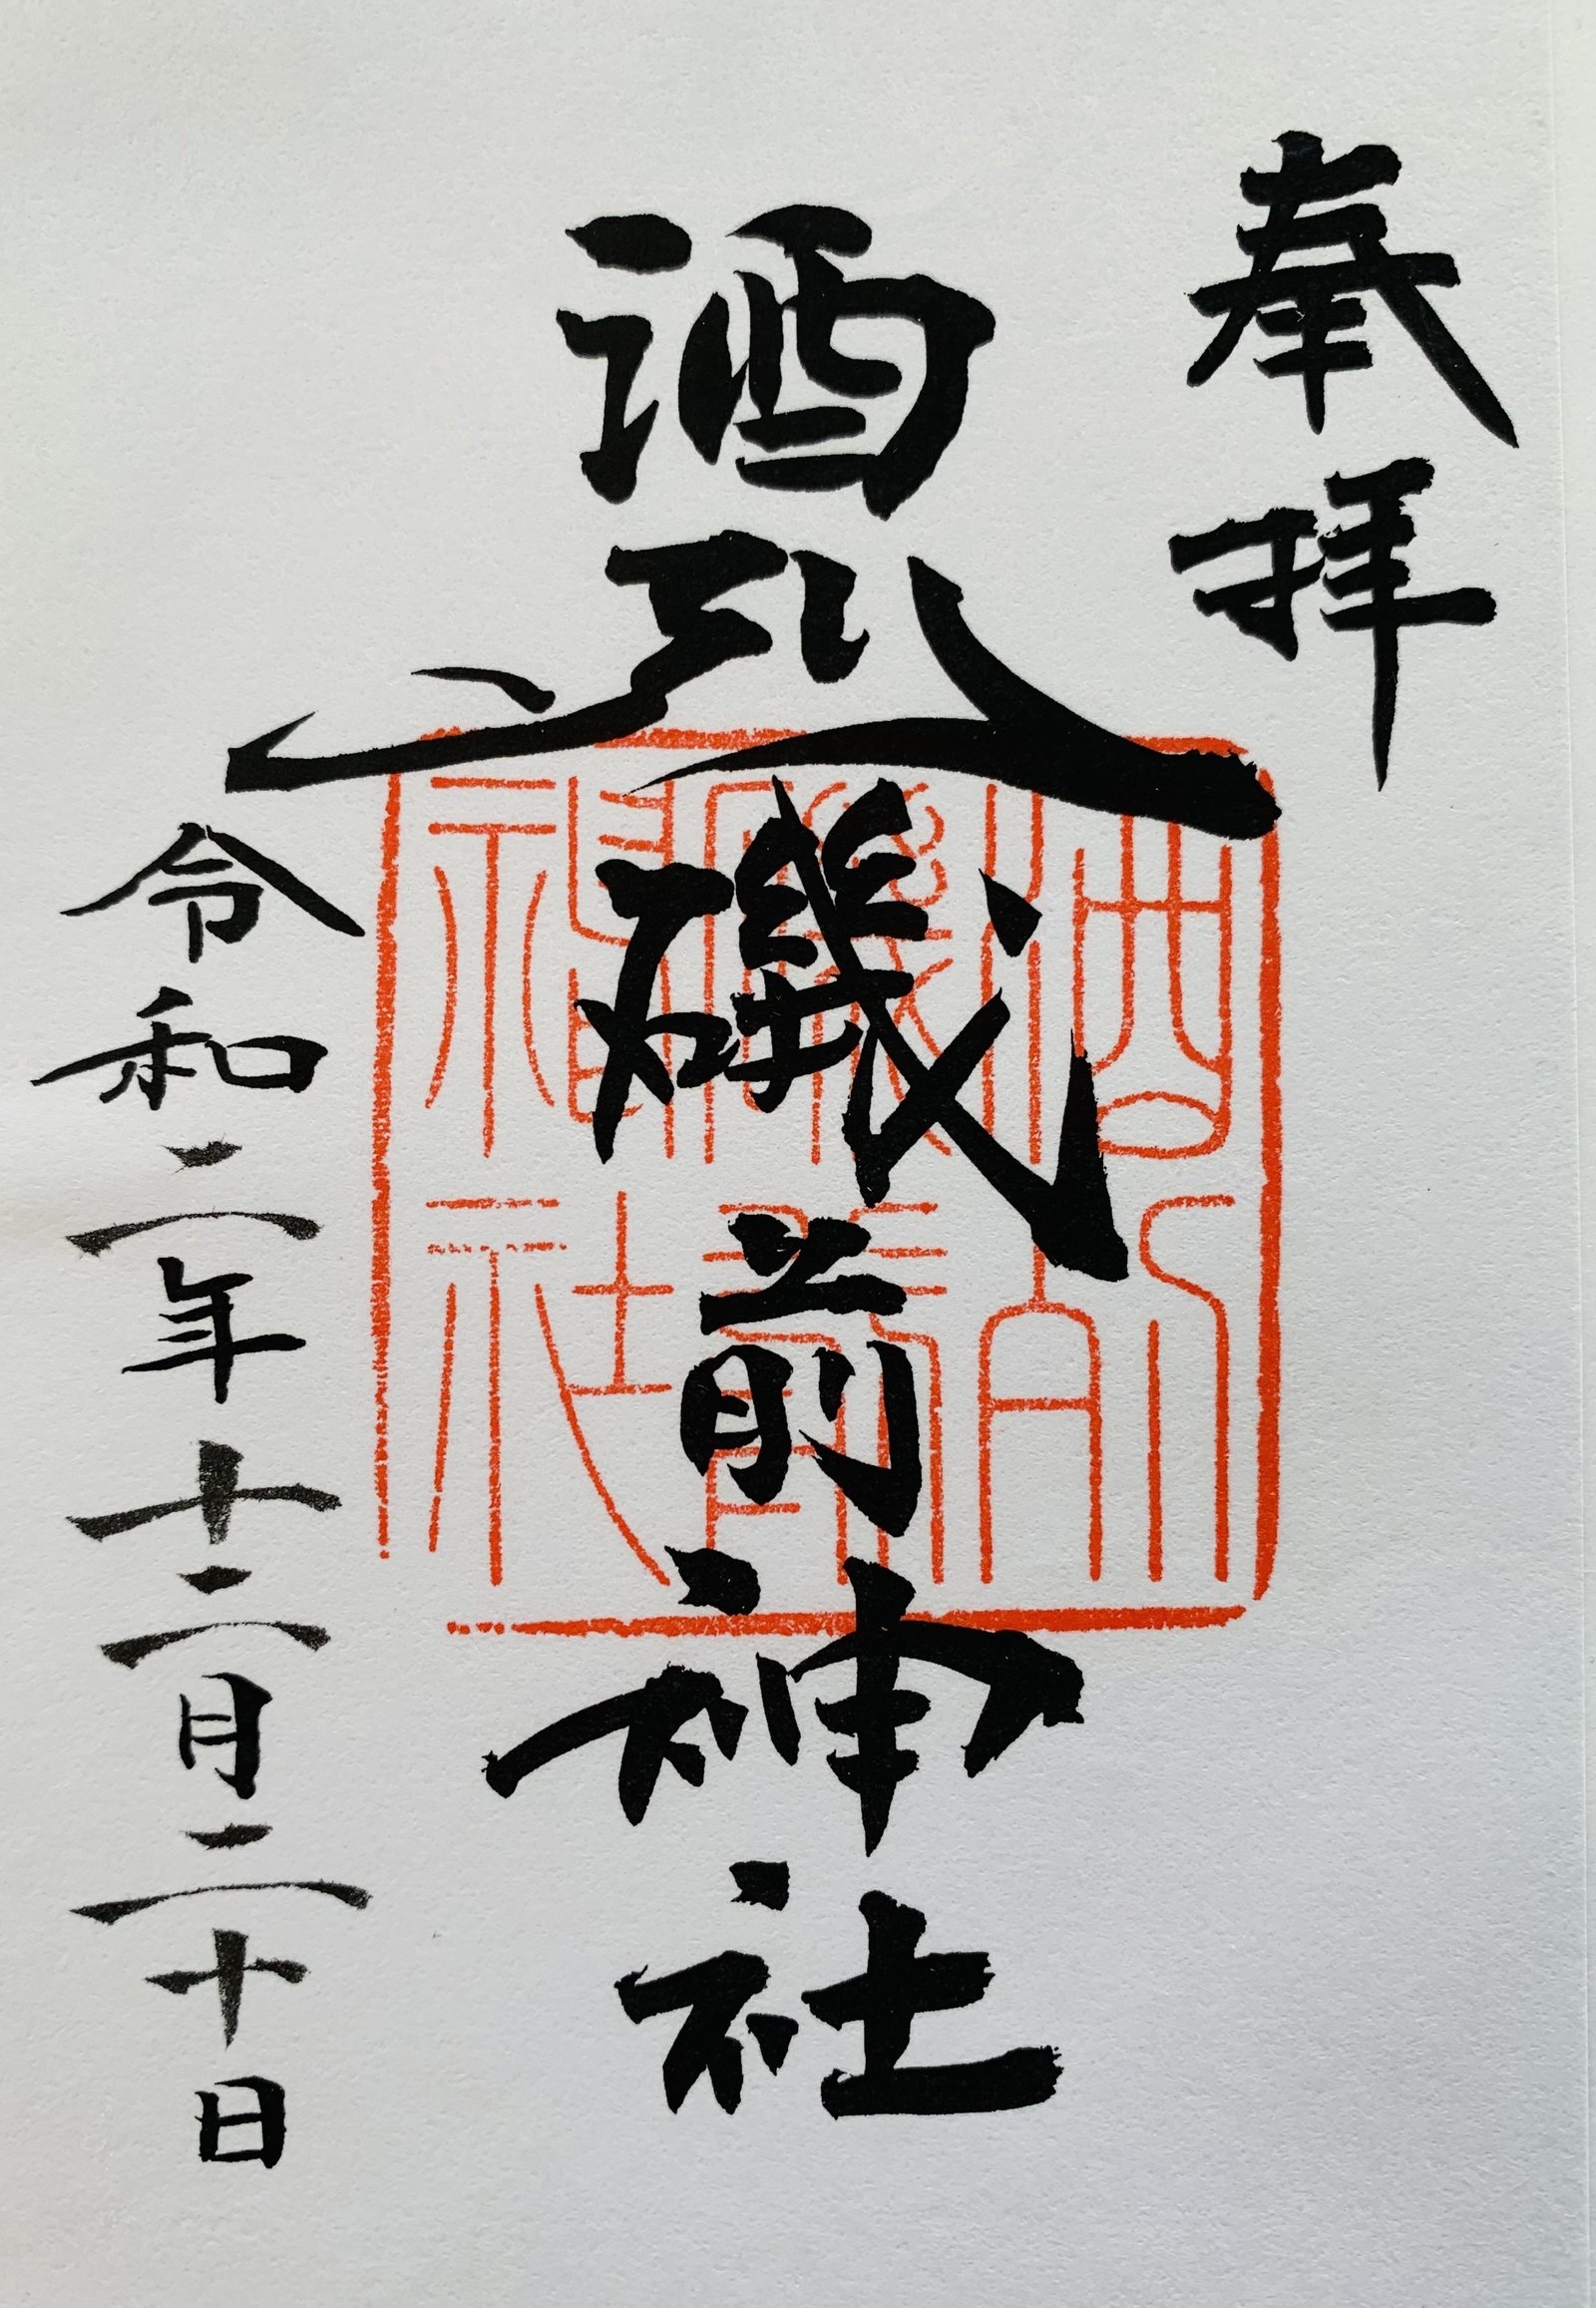 奉拝
酒列磯前神社
酒列
磯前
神社
令和二年十二月二十日